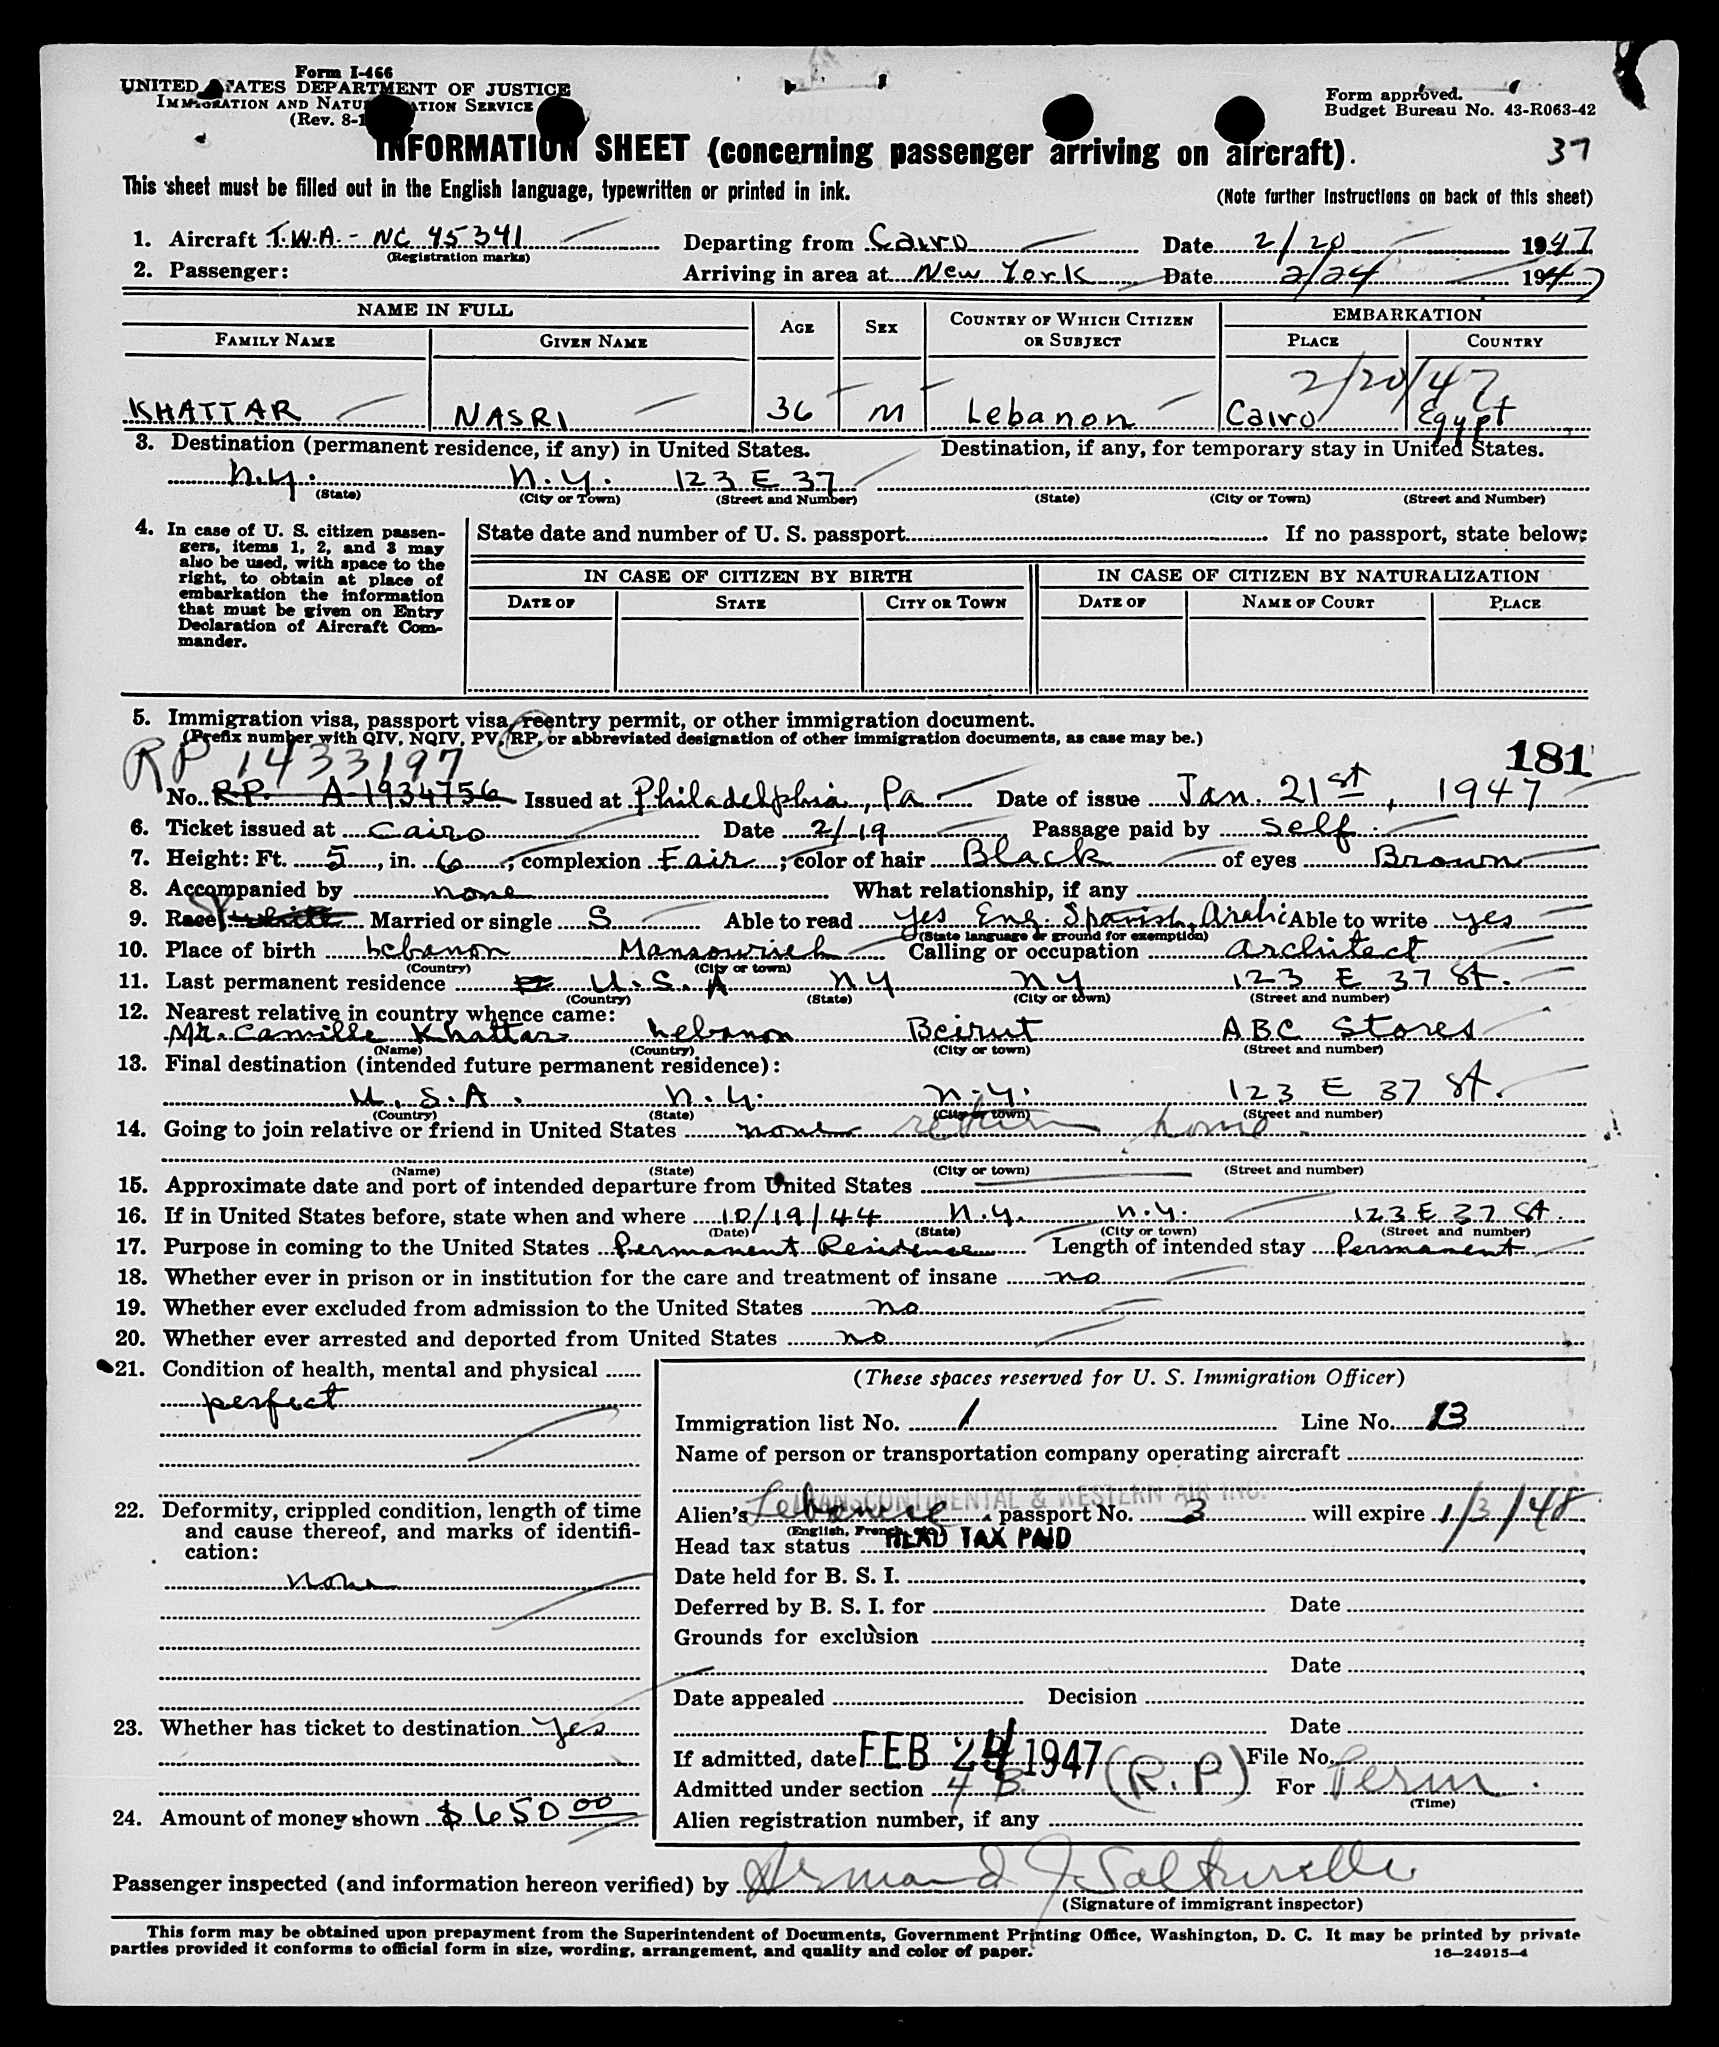 Form I-466
UNITED STATES DEPARTMENT OF JUSTICE
IMMIGRATION AND NATURALIZATION SERVICE
(Rev. 8-1
Form approved.
Budget Bureau No. 43-R063-42
INFORMATION SHEET (concerning passenger arriving on aircraft).
37
This sheet must be filled out in the English language, typewritten or printed in ink.
(Note further instructions on back of this sheet)
1. Aircraft T.W.A. - NC 45341 Departing from Cairo Date 2/20 1947
(Registration marks)
2. Passenger: Arriving in area at New York Date 2/24 1947
NAME IN FULL AGE SEX COUNTRY OF WHICH CITIZEN OR SUBJECT EMBARKATION
FAMILY NAME GIVEN NAME PLACE COUNTRY
2/20/47
KHATTAR NASRI 36 M Lebanon Cairo Egypt
3. Destination (permanent residence, if any) in United States. Destination, if any, for temporary stay in United States.
N.Y. N.Y. 123 E 37
(State) (City or Town) (Street and Number) (State) (City or Town) (Street and Number)
4. In case of U. S. citizen passen-
gers, items 1, 2, and 3 may
also be used, with space to the
right, to obtain at place of
embarkation the information
that must be given on Entry
Declaration of Aircraft Com-
mander.
State date and number of U. S. passport If no passport, state below:
IN CASE OF CITIZEN BY BIRTH IN CASE OF CITIZEN BY NATURALIZATION
DATE OF STATE CITY OR TOWN DATE OF NAME OF COURT PLACE
5. Immigration visa, passport visa, reentry permit, or other immigration document.
(Prefix number with QIV, NQIV, PV, RP, or abbreviated designation of other immigration documents, as case may be.)
RP 1433197 181
No. RP. A-1934756 Issued at Philadelphia, Pa Date of issue Jan. 21st, 1947
6. Ticket issued at Cairo Date 2/19 Passage paid by self.
7. Height: Ft. 5, in. 6; complexion Fair; color of hair Black of eyes Brown
8. Accompanied by none What relationship, if any
9. Race white Married or single S Able to read yes Eng. Spanish, Arabic Able to write yes
(State language or ground for exemption)
10. Place of birth Lebanon Mansourieh Calling or occupation architect
(Country) (City or town)
11. Last permanent residence U.S.A NY NY 123 E 37 St.
(Country) (State) (City or town) (Street and number)
12. Nearest relative in country whence came:
Mr. Camille Khattar Lebanon Beirut ABC Stores
(Name) (Country) (City or town) (Street and number)
13. Final destination (intended future permanent residence):
U.S.A. N.Y. N.Y. 123 E 37 St.
(Country) (State) (City or town) (Street and number)
14. Going to join relative or friend in United States none return home.
(Name) (State) (City or town) (Street and number)
15. Approximate date and port of intended departure from United States
16. If in United States before, state when and where 10/19/44 N.Y. N.Y. 123 E 37 St.
(Date) (State) (City or town) (Street and number)
17. Purpose in coming to the United States Permanent Residence Length of intended stay Permanent
18. Whether ever in prison or in institution for the care and treatment of insane no
19. Whether ever excluded from admission to the United States no
20. Whether ever arrested and deported from United States no
21. Condition of health, mental and physical
perfect
22. Deformity, crippled condition, length of time
and cause thereof, and marks of identifi-
cation:
none
23. Whether has ticket to destination yes
24. Amount of money shown $650 00
(These spaces reserved for U. S. Immigration Officer)
Immigration list No. 1 Line No. 13
Name of person or transportation company operating aircraft
TRANSCONTINENTAL & WESTERN AIR INC.
Alien's Lebanese passport No. 3 will expire 1/3/48
(English, French, etc.)
Head tax status HEAD TAX PAID
Date held for B. S. I.
Deferred by B. S. I. for Date
Grounds for exclusion
Date
Date appealed Decision
Date
If admitted, date FEB 24 1947 File No.
Admitted under section 4 B. (R.P) For Perm.
(Time)
Alien registration number, if any
Passenger inspected (and information hereon verified) by Armand J
(Signature of immigrant inspector)
This form may be obtained upon prepayment from the Superintendent of Documents, Government Printing Office, Washington, D. C. It may be printed by private
parties provided it conforms to official form in size, wording, arrangement, and quality and color of paper.
16—24915-4